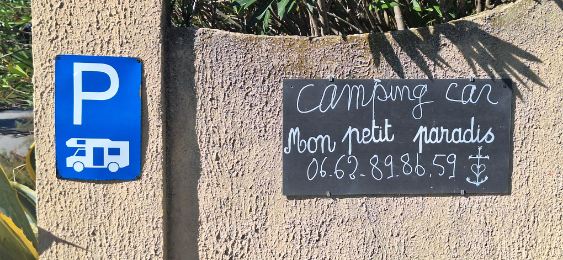 P
camping car
Mon petit paradis
06.63.89.86.59